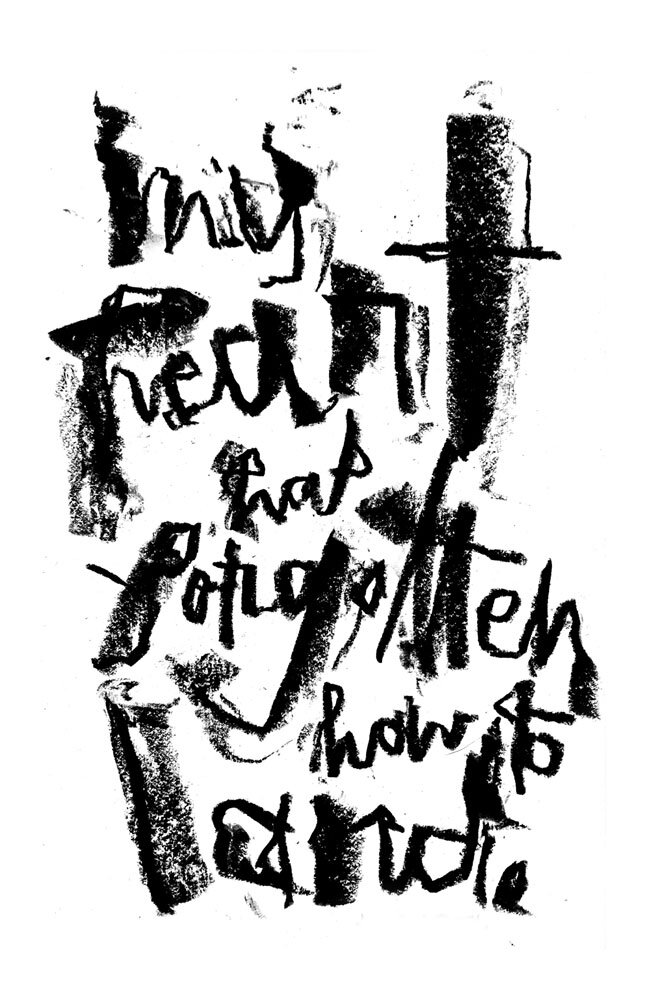 my
heart
has
forgotten
how to
land.